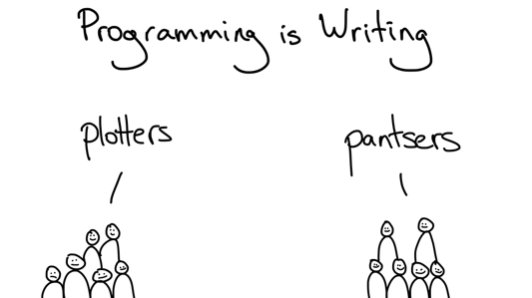 Programming is Writing
plotters
pantsers